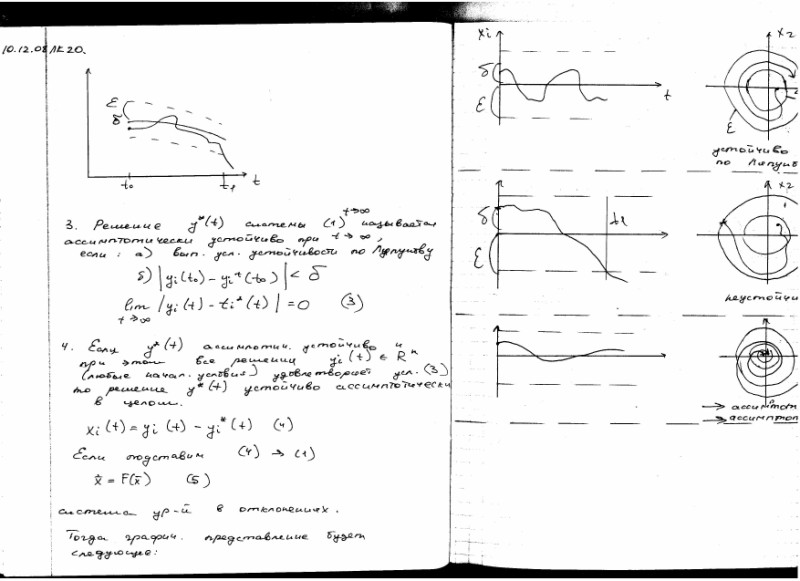 10.12.08 ЛК 20.
ε
δ
t₀
t₁
t
3. Решение y*(t) системы (1) называется
t→∞
ассимптотически устойчиво при t→∞,
если: а) вып. усл. устойчивости по Ляпунову
б) |yᵢ(t₀) - yᵢ*(t₀)| < δ
lim |yᵢ(t) - tᵢ*(t)| = 0 (3)
t→∞
4. Если y*(t) ассимптотич. устойчиво и
при этом все решении yᵢ(t) ∈ Rⁿ
(любые начал. условия) удовлетворяет усл. (3)
то решение y*(t) устойчиво ассимптотически
в целом.
xᵢ(t) = yᵢ(t) - yᵢ*(t) (4)
Если подставим (4) → (1)
ẋ = F(x̄) (5)
система ур-й в отклонениях.
Тогда графич. представление будет
следующее:
xᵢ
δ
ε
t
x₂
ε
устойчиво
по Ляпуно
δ
ε
t₁
x₂
неустойчи
→ ассимптот
→ ассимптот